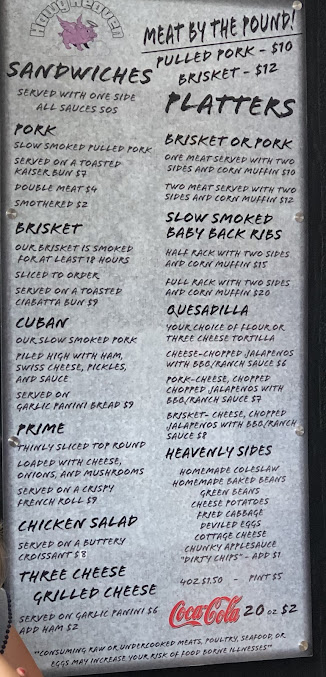 Hawg Heaven
SANDWICHES
SERVED WITH ONE SIDE
ALL SAUCES 50¢
PORK
SLOW SMOKED PULLED PORK
SERVED ON A TOASTED
KAISER BUN $7
DOUBLE MEAT $4
SMOTHERED $2
BRISKET
OUR BRISKET IS SMOKED
FOR AT LEAST 18 HOURS
SLICED TO ORDER
SERVED ON A TOASTED
CIABATTA BUN $9
CUBAN
OUR SLOW SMOKED PORK
PILED HIGH WITH HAM,
SWISS CHEESE, PICKLES,
AND SAUCE
SERVED ON
GARLIC PANINI BREAD $9
PRIME
THINLY SLICED TOP ROUND
LOADED WITH CHEESE,
ONIONS, AND MUSHROOMS
SERVED ON A CRISPY
FRENCH ROLL $9
CHICKEN SALAD
SERVED ON A BUTTERY
CROISSANT $8
THREE CHEESE
GRILLED CHEESE
SERVED ON GARLIC PANINI $6
ADD HAM $2
MEAT BY THE POUND!
PULLED PORK - $10
BRISKET - $12
PLATTERS
BRISKET OR PORK
ONE MEAT SERVED WITH TWO
SIDES AND CORN MUFFIN $10
TWO MEAT SERVED WITH TWO
SIDES AND CORN MUFFIN $12
SLOW SMOKED
BABY BACK RIBS
HALF RACK WITH TWO SIDES
AND CORN MUFFIN $15
FULL RACK WITH TWO SIDES
AND CORN MUFFIN $20
QUESADILLA
YOUR CHOICE OF FLOUR OR
THREE CHEESE TORTILLA
CHEESE-CHOPPED JALAPENOS
WITH BBQ/RANCH SAUCE $6
PORK-CHEESE, CHOPPED
CHOPPED JALAPENOS WITH
BBQ/RANCH SAUCE $7
BRISKET- CHEESE, CHOPPED
JALAPENOS WITH BBQ/RANCH
SAUCE $8
HEAVENLY SIDES
HOMEMADE COLESLAW
HOMEMADE BAKED BEANS
GREEN BEANS
CHEESE POTATOES
FRIED CABBAGE
DEVILED EGGS
COTTAGE CHEESE
CHUNKY APPLESAUCE
"DIRTY CHIPS" - ADD $1
4OZ $1.50 - PINT $5
Coca-Cola 20 OZ $2
"CONSUMING RAW OR UNDERCOOKED MEATS, POULTRY, SEAFOOD, OR
EGGS MAY INCREASE YOUR RISK OF FOOD BORNE ILLNESSES"